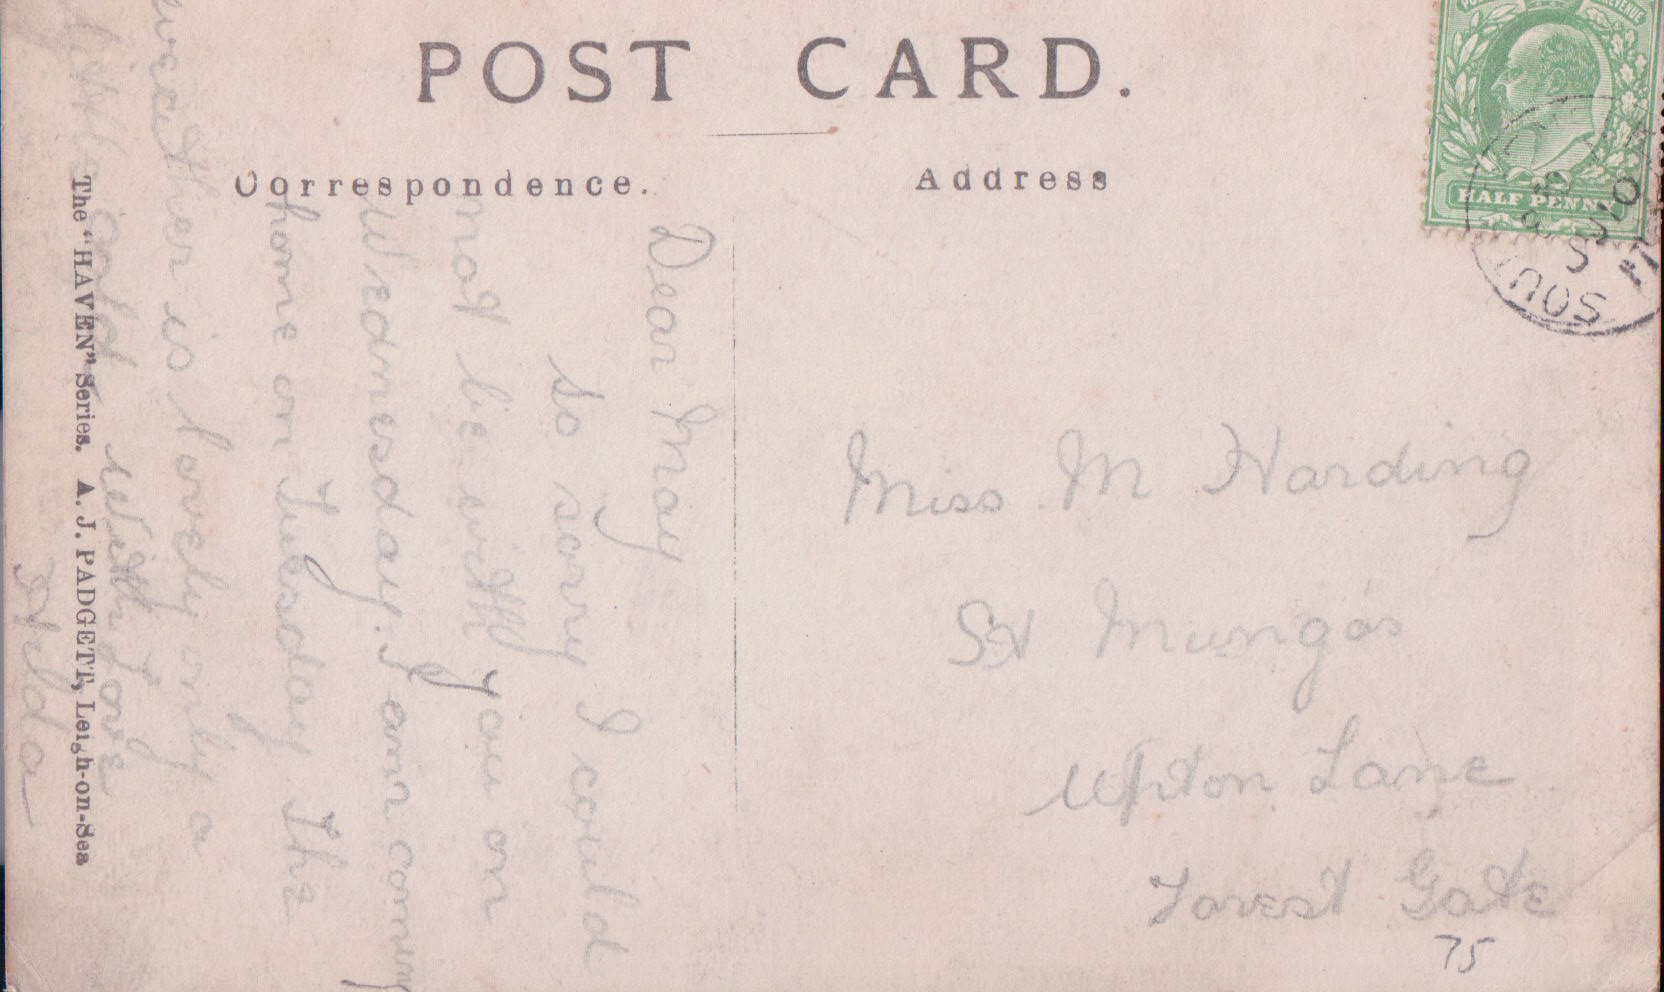 POST CARD.
Correspondence.
Address
HALF PENNY
SOUT
Dear May
So sorry I could
not be with you on
Wednesday. I am coming
home on Tuesday The
weather is lovely only a
little cold. With Love
Hilda
Miss M Harding
St Mungos
Upton Lane
Forest Gate
75
The "HAVEN" Series. A. J. PADGETT, Leigh-on-Sea